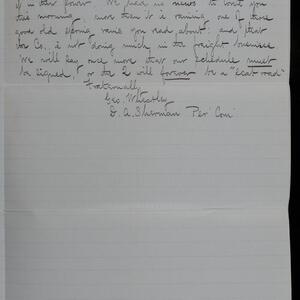 if in their power. We had no news to write you
this morning, more than it is raining one of those
good old spring rains you read about, and that
the Co. is not doing much in the freight business
We will say once more that our schedule must
be signed, or the L will forever be a "scab road"
Fraternally,
Geo. Wheatley
D. A. Sherman Per Com